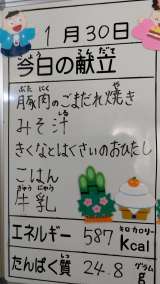 1月30日
今日の献立
きょう こんだて
ぶた にく や
豚肉のごまだれ焼き
しる
みそ汁
きくなとはくさいのおひたし
ごはん
ぎゅうにゅう
牛乳
エネルギー 587 キロカロリー Kcal
たんぱく質 24.8 グラム g